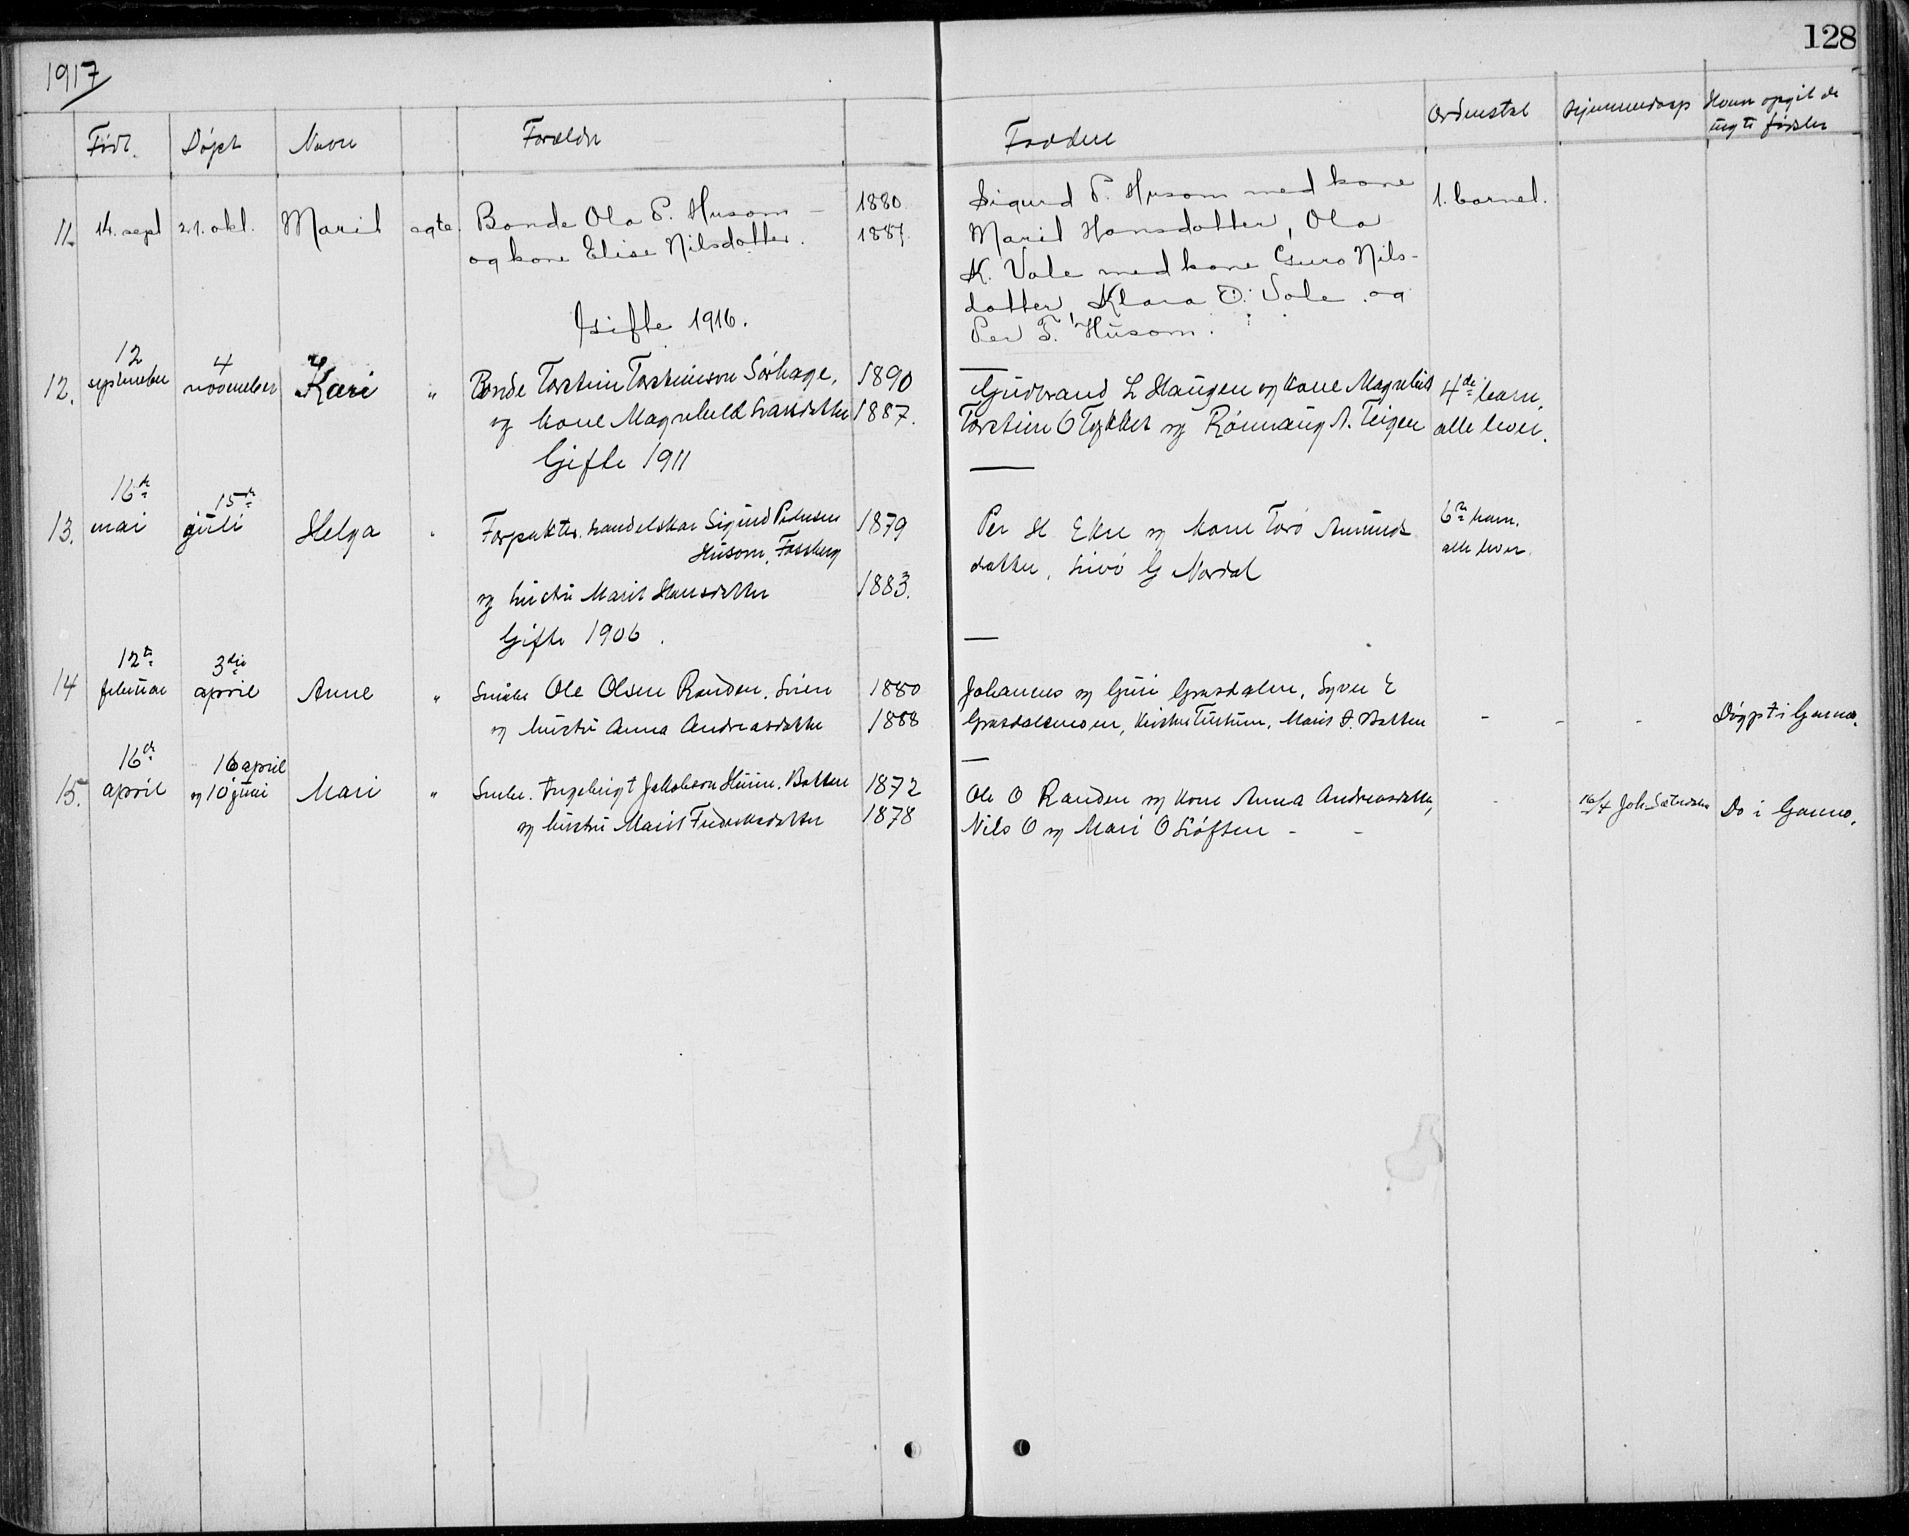 128
1917
Født. Døpt Navn Forældre Faddere Ordenstal Hjemmedaap
11. 14. sept 21. okt. Marit egte Bonde Ola P. Husom – 1880
og kone Elise Nilsdotter. 1887.
Gifte 1916.
Sigurd P. Husom med kone
Marit Hansdotter, Ola
K. Vole med kone Guro Nils-
dotter, Klara O. Vole og
Per T. Husom.
1. barnet.
12. 12 september 4 november Kari " Bonde Torstein Torsteinson Sørhage, 1890
og kone Magnhild Larsdatter 1887.
Gifte 1911
Gudbrand L Haugen og kone Magnhild
Torstein O Tykket og Rønnaug A. Teigen
4de barn,
alle lever.
13. 16de mai 15de juli Helga " Forpakter, handelskar Sigurd Pedersen 1879
Husom, Fossberg
og hustru Marit Hansdatter 1883.
Gifte 1906.
Per H Ekre og kone Toro Amunds
datter, G Nordal
6te barn.
alle lever.
14 12te februar 3die april Anne " Ole Olsen Randen, 1880
og hustru Anna Andreasdatter 1888
Johannes og Guri Grasdalen, Syver E
Grasdalsmoen, Marit Bakken – – –
Døypt i Garmo.
15. 16de april 16 april
og 10 juni Mari " Engebrigt Jakobson Bakken 1872
og hustru Marit Fredriksdatter 1878
Ole O Randen og kone Anna Andreasdatter,
Nils O og Mari O Løften – –
–
16/4 Joh.
Do i Garmo.